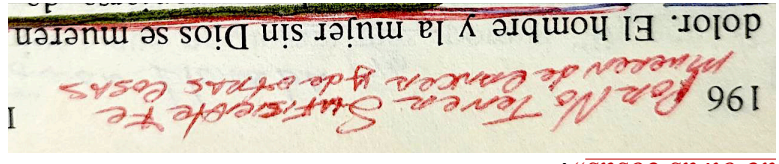 196 Por No Tener Suficiente Fe
mueren de Cancer y de otras Cosas
dolor. El hombre y la mujer sin Dios se mueren